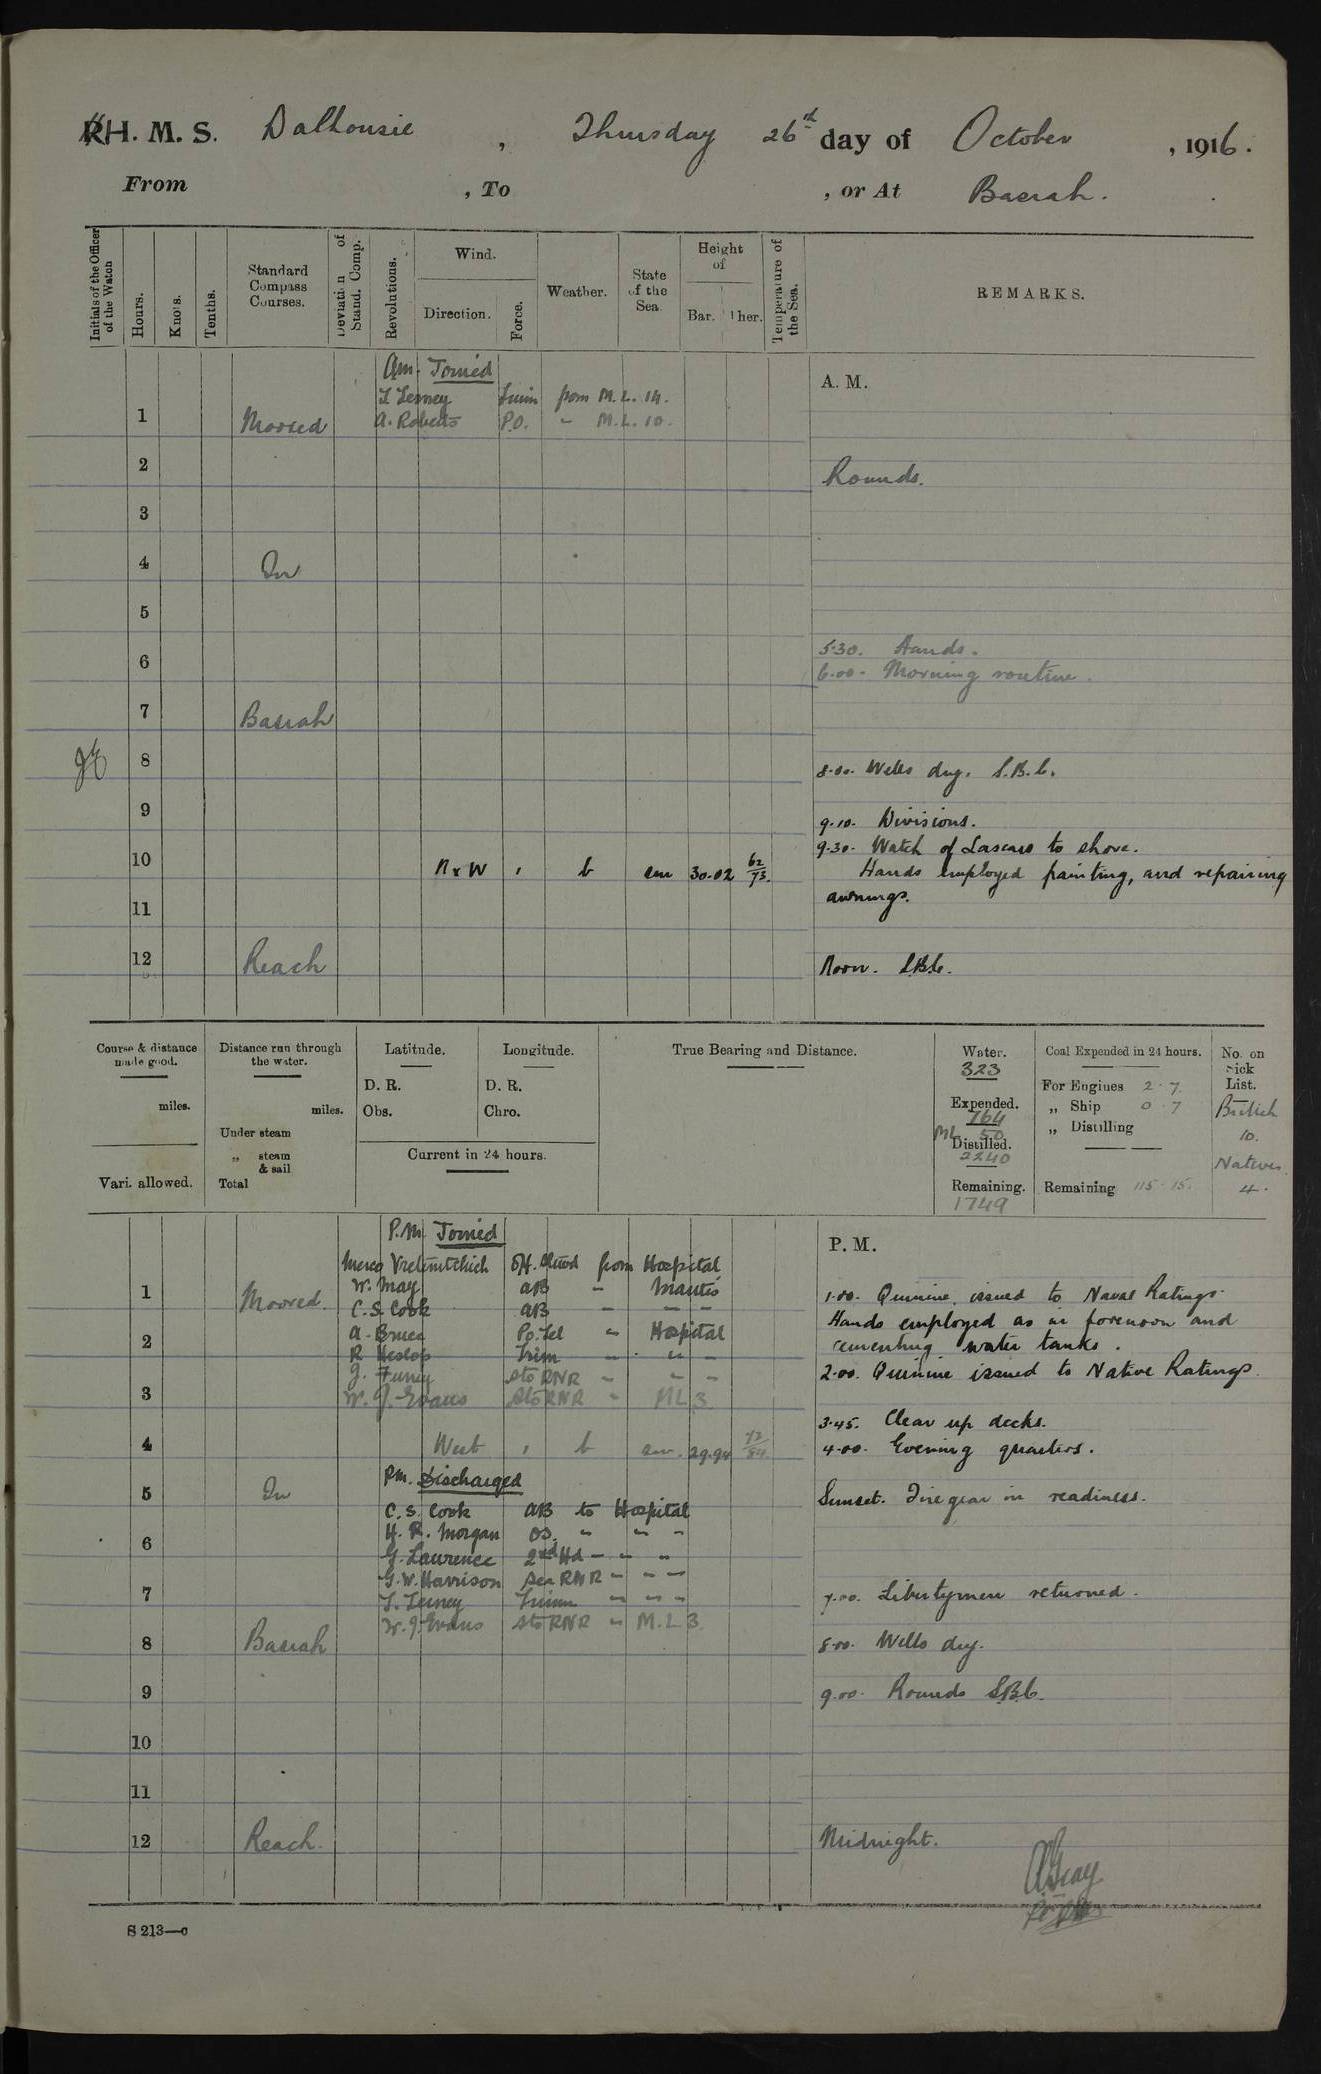 H. M. S. Dalhousie, Thursday 26th day of October, 1916.
From , To , or At Basrah.
Initials of the Officer of the Watch
Hours.
Knots.
Tenths.
Standard Compass Courses.
Deviation of Stand. Comp.
Revolutions.
Wind.
Direction.
Force.
Weather.
State of the Sea.
Height of
Bar. Ther.
Temperature of the Sea.
REMARKS.
Am. Joined
A. M.
T. Terney Trim from M.L. 14.
1 Moored A. Roberts P.O. " M.L. 10.
2 Rounds.
3
4 In
5
5.30. Hands.
6 6.00. Morning routine.
7 Basrah
8 8.00. Wells dry. S.B.C.
9 9.10. Divisions.
9.30. Watch of Lascars to shore.
10 N x W 1 b sm 30.02 62/73. Hands employed painting, and repairing
11 awnings.
12 Reach Noon. S.B.C.
Course & distance made good.
miles.
Vari. allowed.
Distance run through the water.
miles.
Under steam
„ steam & sail
Total
Latitude.
D. R.
Obs.
Longitude.
D. R.
Chro.
Current in 24 hours.
True Bearing and Distance.
Water.
323
Expended.
764
ML 50
Distilled.
2240
Remaining.
1749
Coal Expended in 24 hours.
For Engines 2.7
„ Ship 0.7
„ Distilling
Remaining 115.15.
No. on Sick List.
British
10.
Natives.
4.
P.M. Joined
P. M.
from Hospital
1 Moored. W. May AB " Mantis
1.00. Quinine issued to Naval Ratings.
C. S. Cook AB " "
Hands employed as in forenoon and
2 A. Bruce Po. Tel " Hospital
cementing water tanks.
R Heslop Trim " " "
2.00. Quinine issued to Native Ratings.
J. Furney Sto RNR " " "
3 W. J. Evans Sto RNR " ML 3
3.45. Clear up decks.
4 West 1 b sm. 29.94 72/84 4.00. Evening quarters.
P.M. Discharged
5 In Sunset. Fire gear in readiness.
C. S. Cook AB to Hospital
6 H. R. Morgan OS. " " "
G. Laurence 2nd Hd " " "
G. W. Harrison Sea RNR " " "
7 T. Terney Trimr " " "
7.00. Libertymen returned.
W. J. Evans Sto RNR " M.L 3.
8 Basrah 8.00. Wells dry.
9 9.00. Rounds S.B.C.
10
11
12 Reach. Midnight.
A Gray
S 213—c